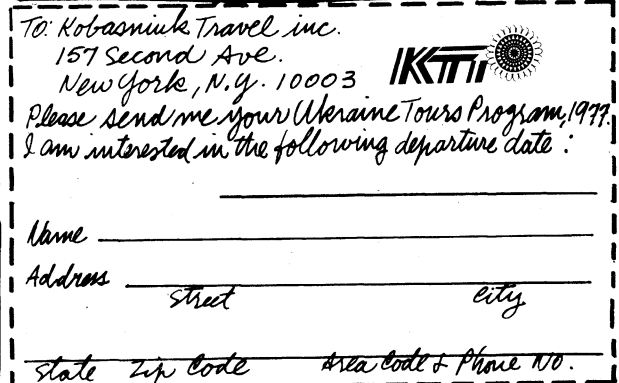 To: Kobasniuk Travel inc.
157 Second Ave.
New York, N.Y. 10003
KTI
Please send me your Ukraine Tours Program, 1977.
I am interested in the following departure date :
Name
Address
Street City
State Zip Code Area Code & Phone No.